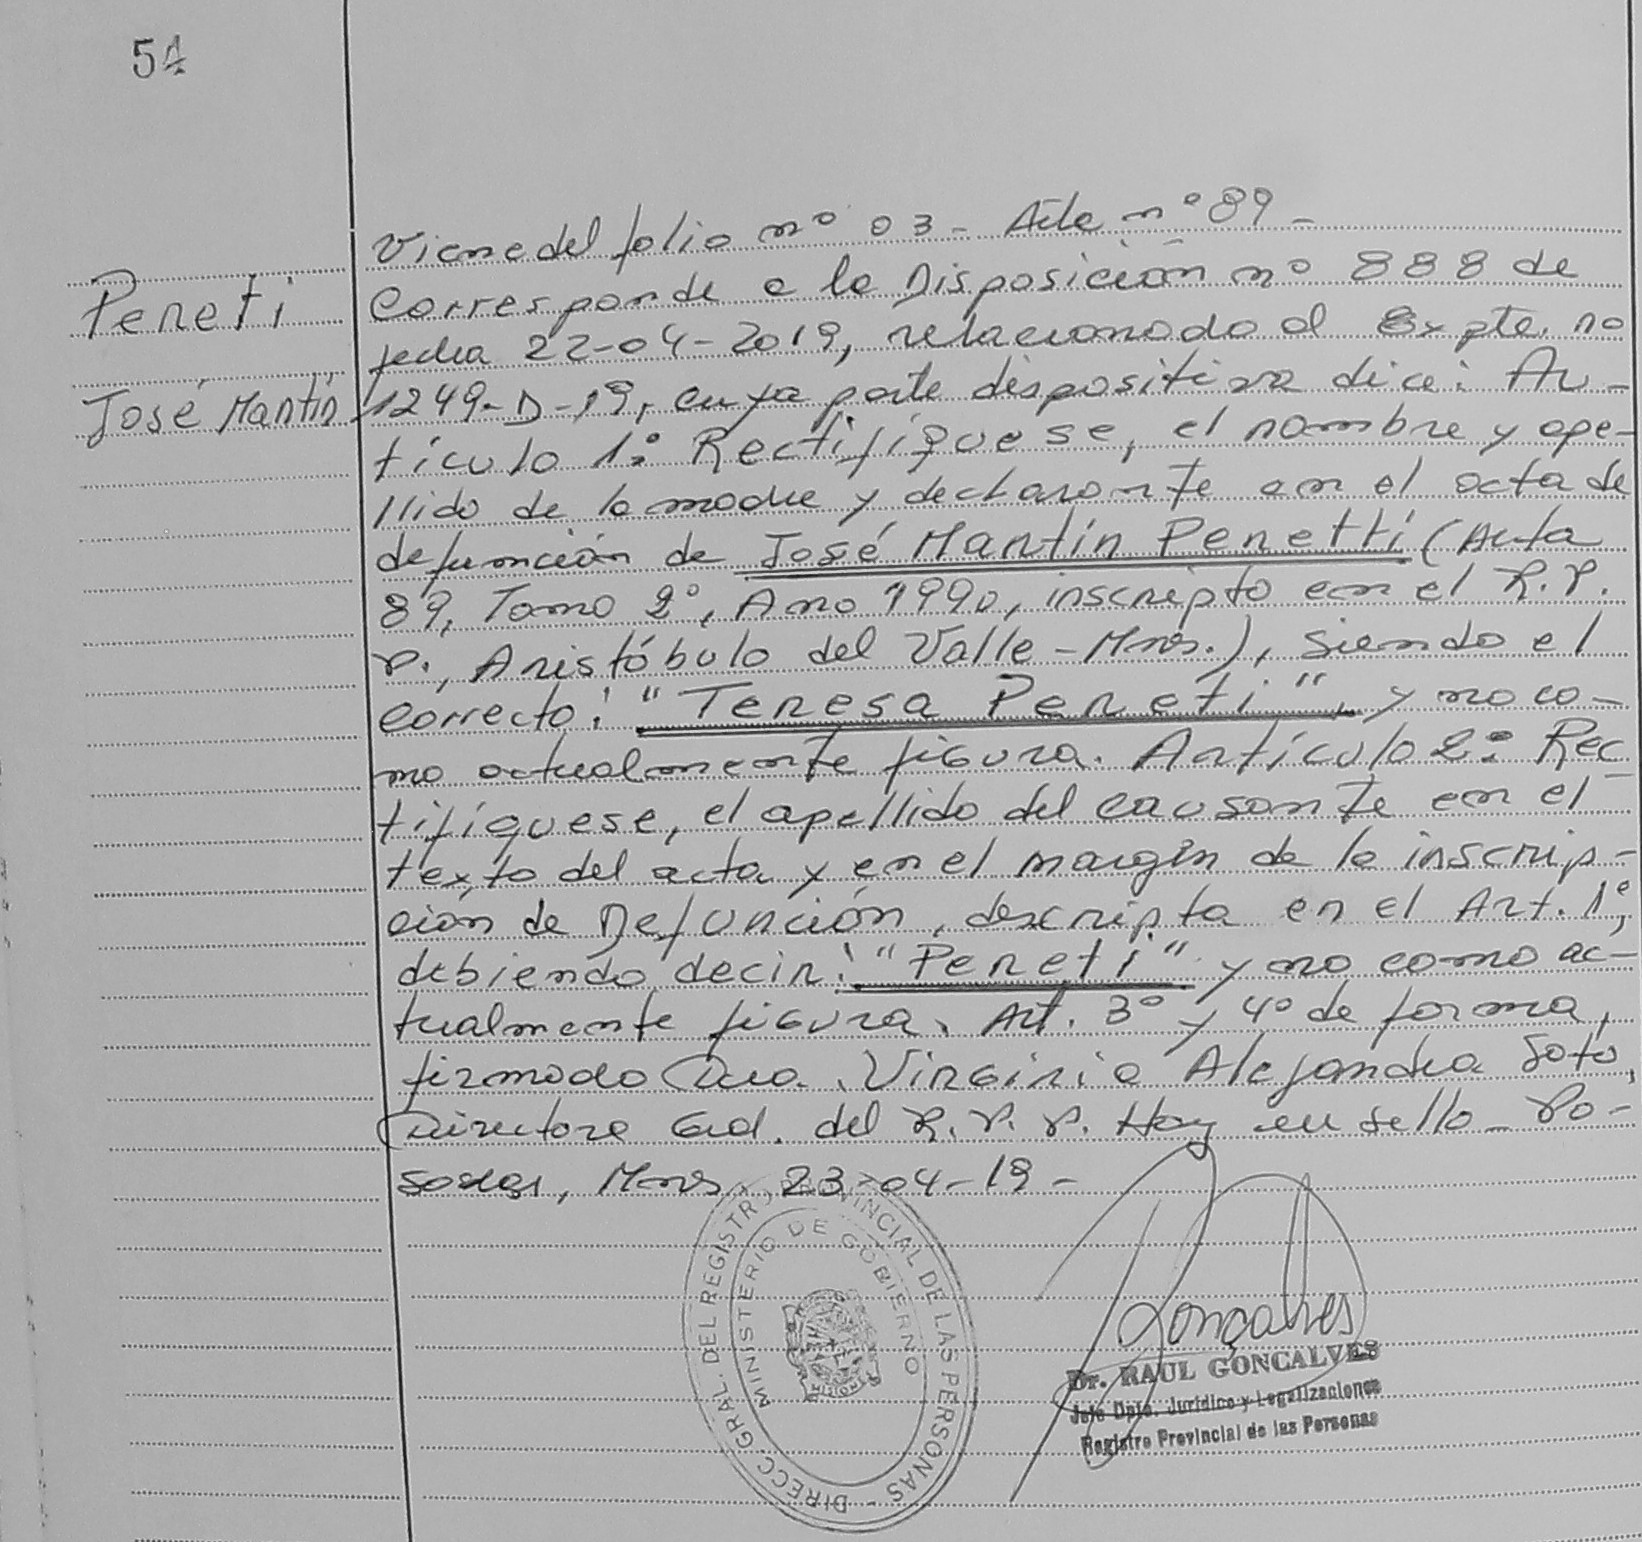 54
Viene del folio nº 03 - Acta nº 89 -
Pereti
José Martín
Corresponde a la Disposición nº 888 de
fecha 22-04-2019, relacionado al Expte. nº
1249-D-19, cuya parte dispositiva dice: Ar-
tículo 1º: Rectifíquese, el nombre y ape-
llido de la madre y declarante en el acta de
defunción de José Martín Peretti (Acta
89, Tomo 2º, Año 1990, inscripto en el R.P.
P., Aristóbulo del Valle - Mnes.), siendo el
correcto: "Teresa Pereti", y no co-
mo actualmente figura. Artículo 2º: Rec-
tifíquese, el apellido del causante en el
texto del acta y en el margen de la inscrip-
ción de Defunción, descripta en el Art. 1º,
debiendo decir: "Pereti" y no como ac-
tualmente figura. Art. 3º y 4º de forma,
firmado Dra. Virginia Alejandra Soto,
Directora Gral. del R.P.P. Hay un sello - Po-
sadas, Mnes 23-04-19 -
DIRECC. GRAL. DEL REGISTRO PROVINCIAL DE LAS PERSONAS -
MINISTERIO DE GOBIERNO
MISIONES
Gonçalves
Dr. RAUL GONCALVES
Jefe Dpto. Jurídico y Legalizaciones
Registro Provincial de las Personas